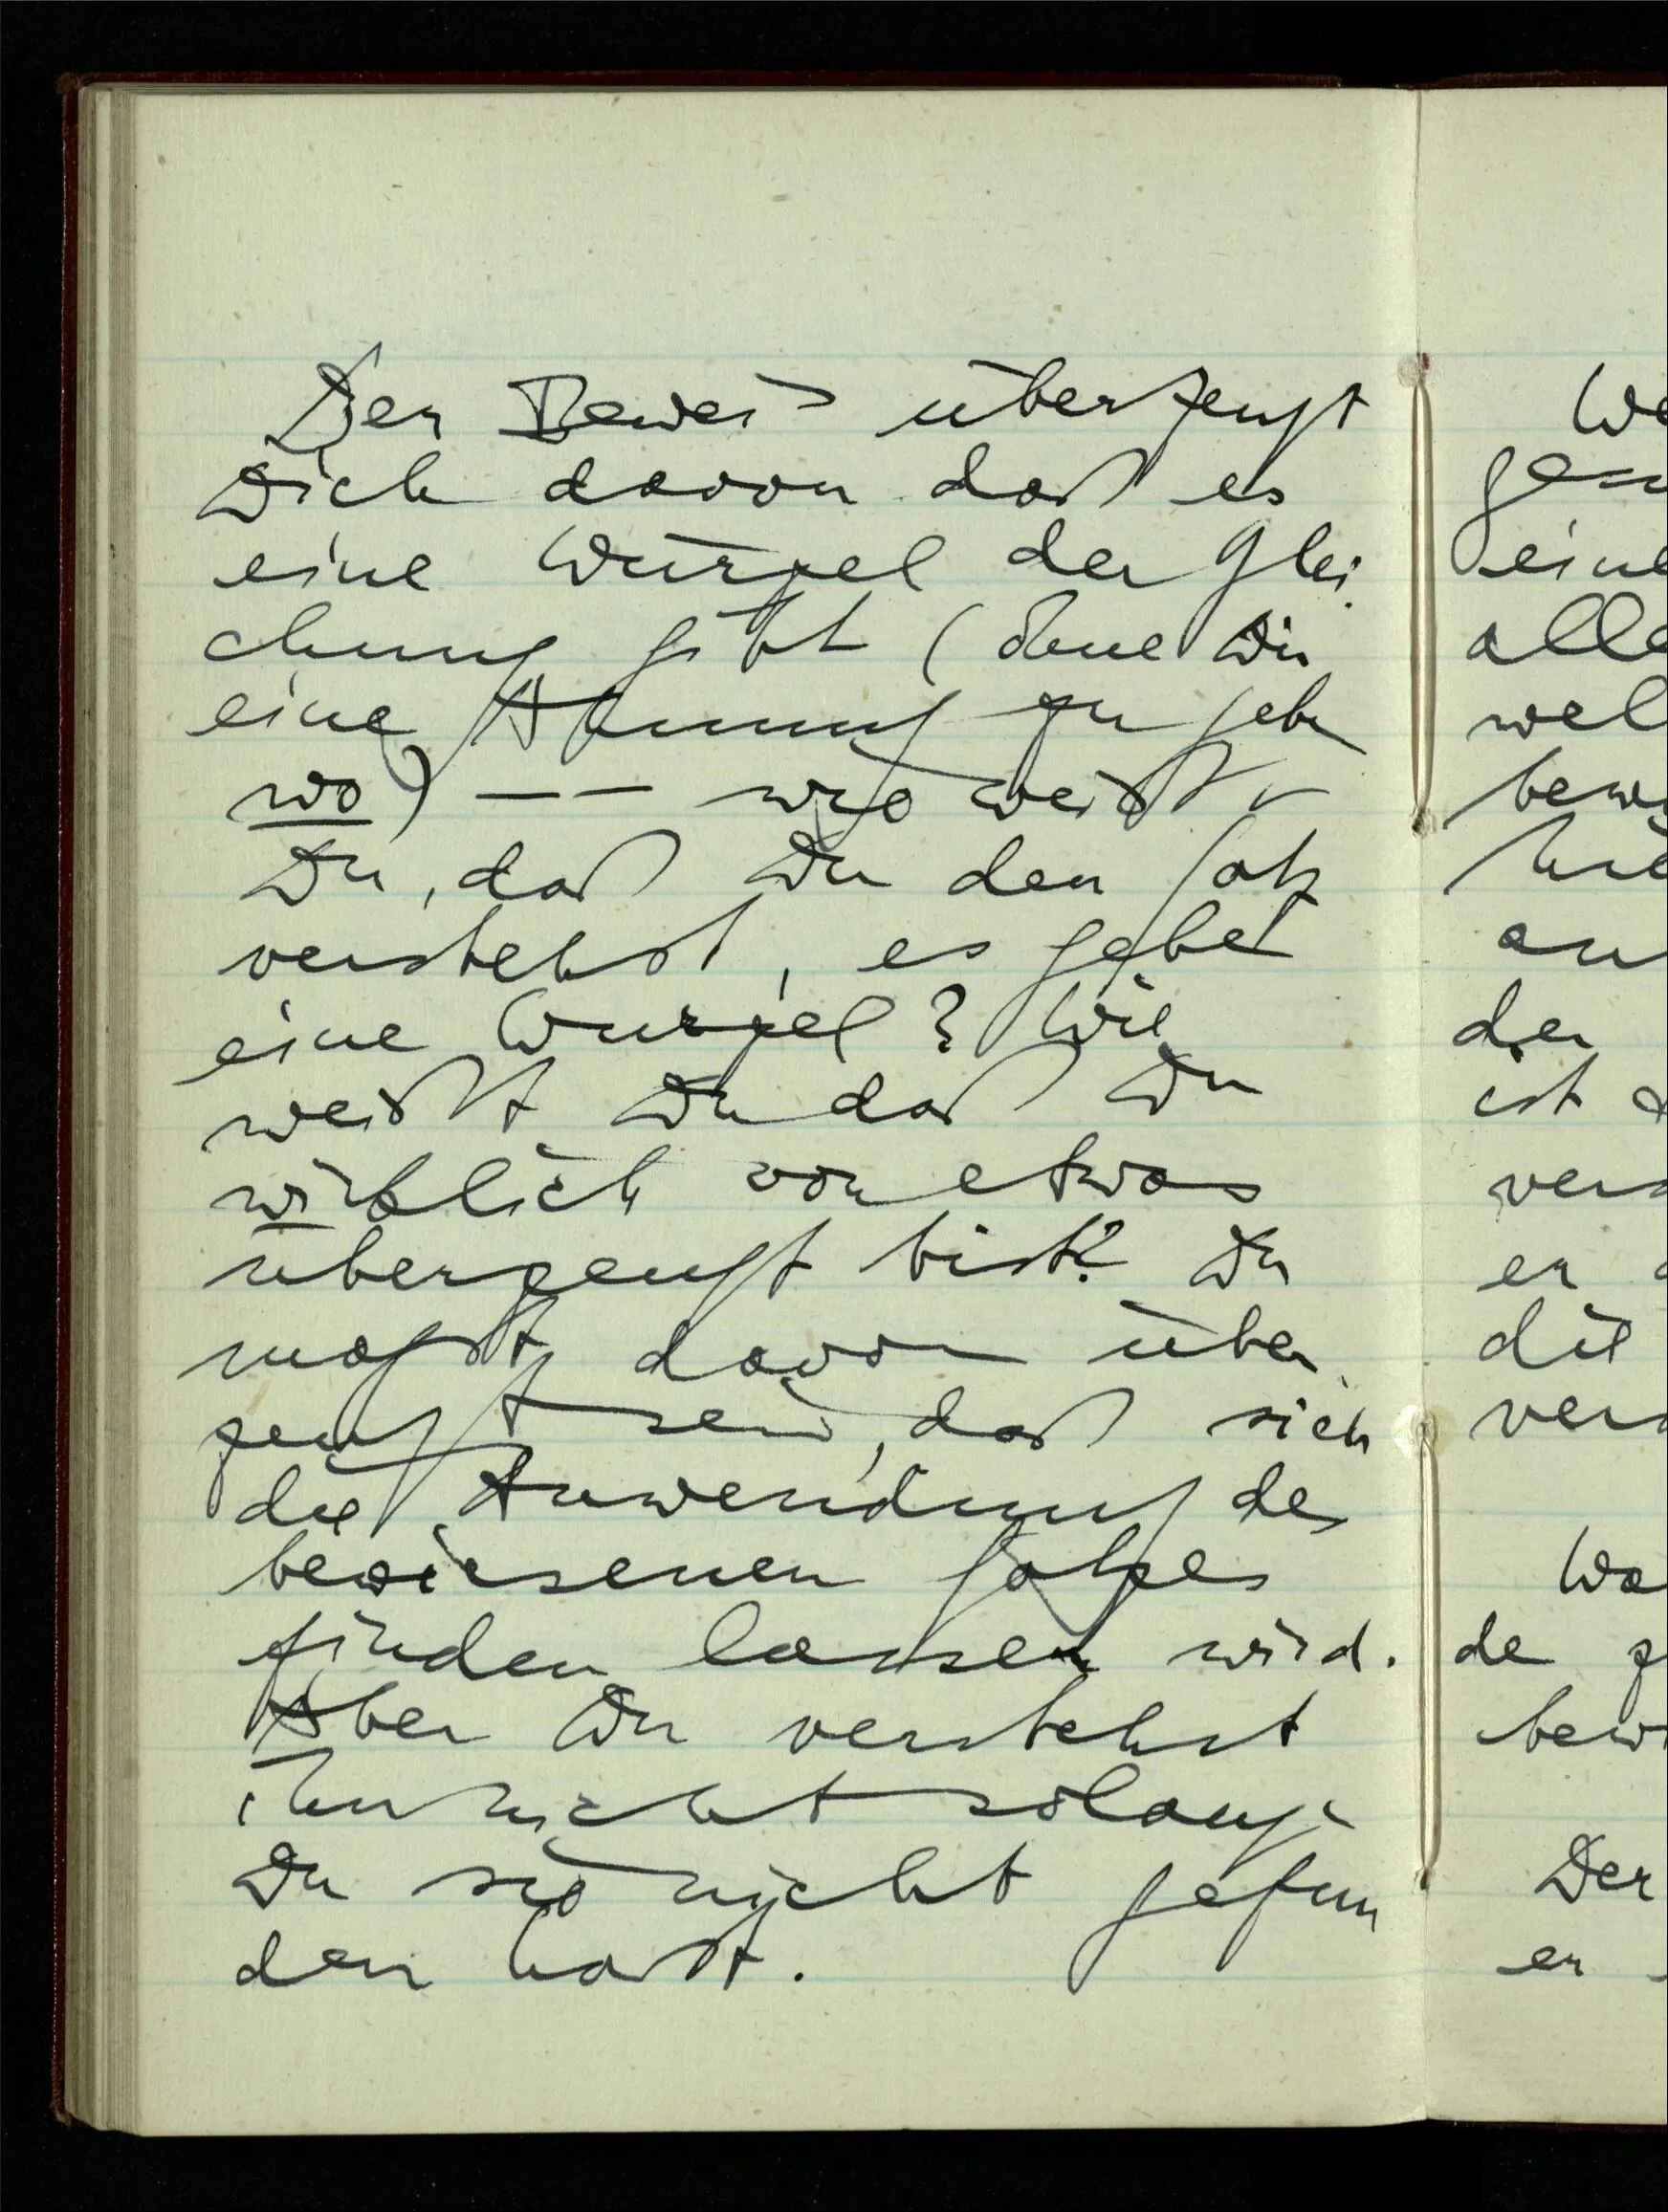 Der Beweis überzeugt
Dich davon daß es
eine Wurzel der Glei
chung gibt (ohne Dir
eine Ahnung zu geben
wo) –– wie weißt
Du, daß Du den Satz
verstehst, es gebe
eine Wurzel? Wie
weißt Du daß Du
wirklich von etwas
überzeugt bist? Du
magst davon über
zeugt sein, daß sich
die Anwendung des
bewiesenen Satzes
finden lassen wird.
Aber Du verstehst
ihn nicht solange
Du sie nicht gefun
den hast.
We
eine
alle
wel
bew
an
der
ist
vers
er
die
vers
Wa
de
bew
Der
er